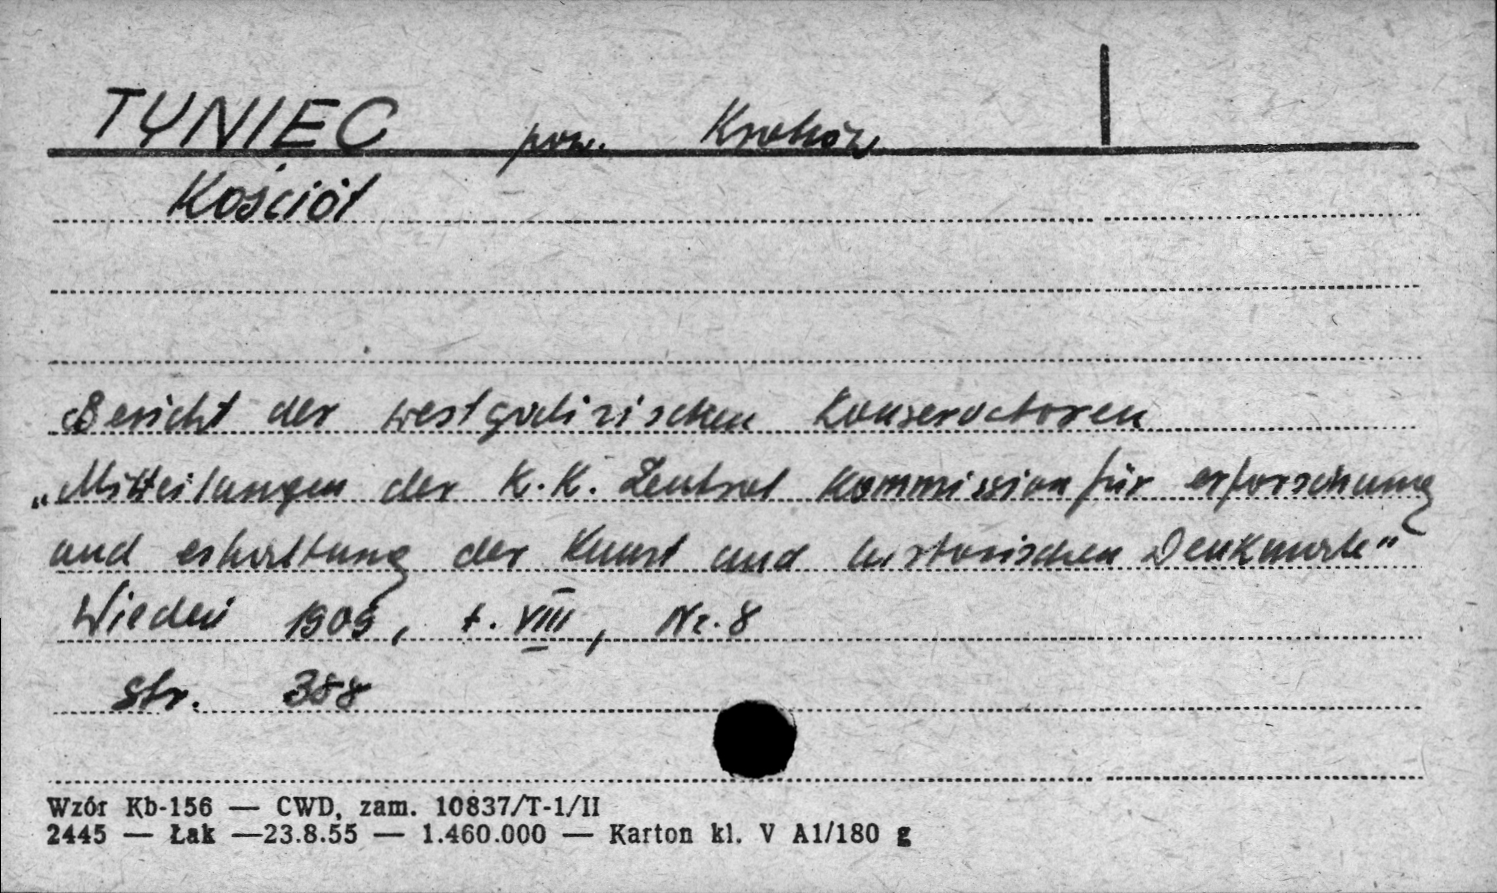 TYNIEC pow. Kraków
Kościół
Bericht der westgalizischen Konservatoren
„Mitteilungen der K.K. Zentral Kommission für erforschung
und erhaltung der Kunst und historischen Denkmale"
Wiedeń 1909, t. VIII, Nr. 8
str. 388
Wzór Kb-156 — CWD, zam. 10837/T-1/II
2445 — Łak —23.8.55 — 1.460.000 — Karton kl. V A1/180 g